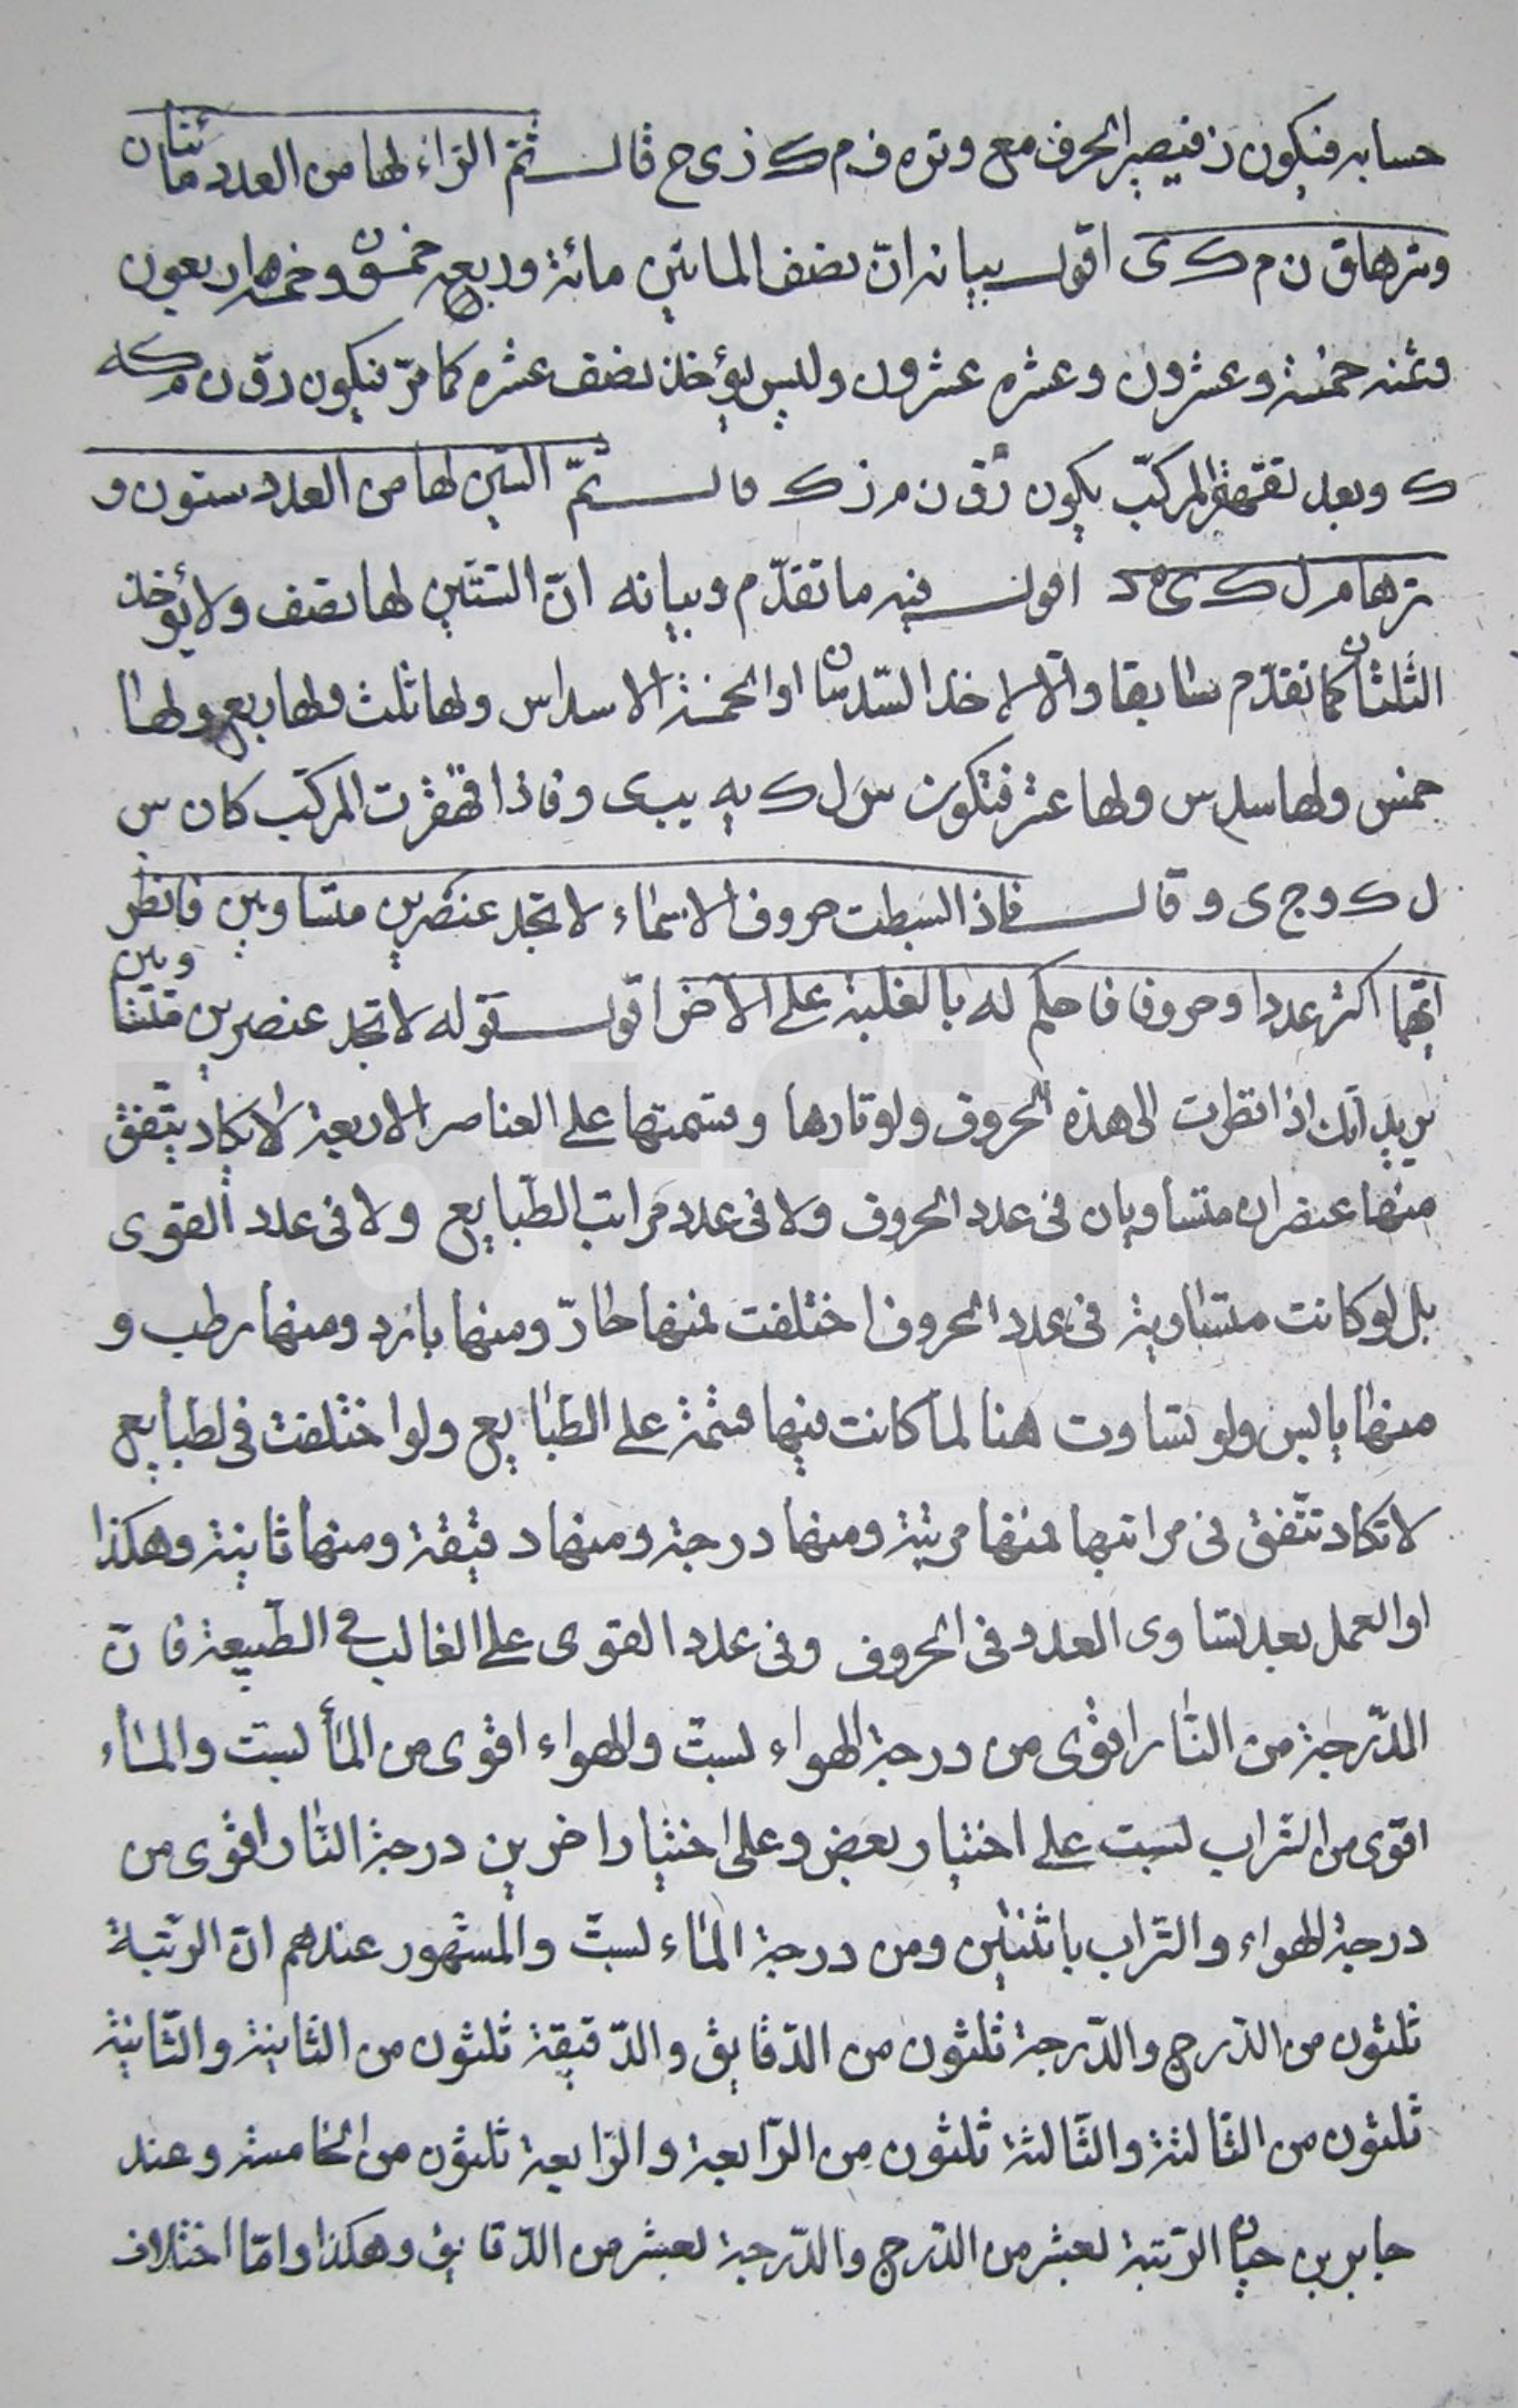 حسابه فيكون ز فيصير الحرف مع وتره ف م ك ز ى ح قال ثمّ الرّاء لها من العدد مأتان
وترها ق ن م ك ى اقول بيانه انّ نصف المايتين مائة وربعه خمسون وخمسه اربعون
وثمنه خمسة وعشرون وعشره عشرون وليس يؤخذ نصف عشره كما مرّ فيكون ر ق ن م كه
ك وبعد تقهقر المركّب يكون ر ق ن م ز ك قال ثمّ السّين لها من العدد ستون و
ترها م ل ك ى ه د اقول فيه ما تقدّم وبيانه انّ الستّين لها نصف ولا يؤخذ
الثلثان كما تقدّم سابقا والّا لاخذ السّدسان او الخمسة الاسداس ولها ثلث ولها ربع ولها
خمس ولها سدس ولها عشر فتكون س ل ك يه يب ى و فاذا قهقرت المركّب كان س
ل ك و ج ى و قال فاذا بسطت حروف الاسماء لا تجد عنصرين متساويين فانظر
ايّهما اكثر عددا وحروفا فاحكم له بالغلبة على الآخر اقول قوله لا تجد عنصرين متساويين
يريد انّك اذا نظرت الى هذه الحروف ولوتارها وقسمتها على العناصر الاربعة لا يكاد يتّفق
منها عنصران متساويان فى عدد الحروف ولا فى عدد مراتب الطّبايع ولا فى عدد القوى
بل لو كانت متساوية فى عدد الحروف اختلفت فمنها حارّ ومنها بارد ومنها رطب و
منها يابس ولو تساوت هنا لما كانت فيها قسمة على الطّبايع ولو اختلفت فى لطبايع
لا تكاد تتّفق فى مراتبها فمنها مرتبة ومنها درجة ومنها دقيقة ومنها ثانية وهكذا
او العمل بعد تساوى العدد فى الحروف وفى عدد القوى على الغالب فى الطّبيعة فانّ
الدّرجة من النّار اقوى من درجة الهواء بستّ والهواء اقوى من المأ بستّ والماء
اقوى من التراب بست على اختيار بعض وعلى اختيار اخرين درجة النّار اقوى من
درجة الهواء والتراب باثنتين ومن درجة الماء بستّ والمشهور عندهم انّ الرّتبة
ثلثون من الدّرج والدّرجة ثلثون من الدّقايق والدّقيقة ثلثون من الثّانية والثّانية
ثلثون من الثّالثة والثّالثة ثلثون من الرّابعة والرّابعة ثلثون من الخامسة وعند
جابر بن حيان الرّتبة بعشر من الدّرج والدّرجة بعشر من الدّقايق وهكذا وامّا اختلاف